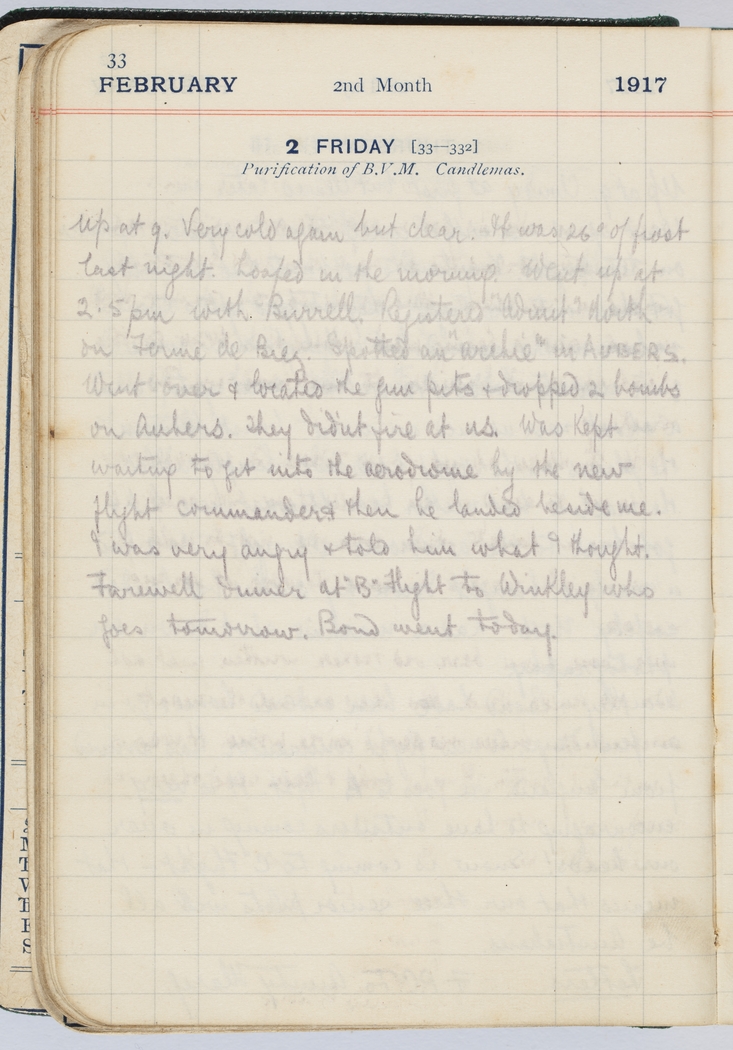 33
FEBRUARY 2nd Month 1917
2 FRIDAY [33—332]
Purification of B.V.M. Candlemas.
Up at 9. Very cold again but clear. It was 26° of frost
last night. Loafed in the morning. Went up at
2.5 pm with Burrell. Registered "Admit" North
on Ferme de Biez. Spotted an "archie" in AUBERS.
Went over & located the gun pits & dropped 2 bombs
on Aubers. They didn't fire at us. Was kept
waiting to get into the aerodrome by the new
flight commander & then he landed beside me.
I was very angry & told him what I thought.
Farewell dinner at "B" Flight to Winkley who
goes tomorrow. Bond went today.
S
M
T
W
T
F
S